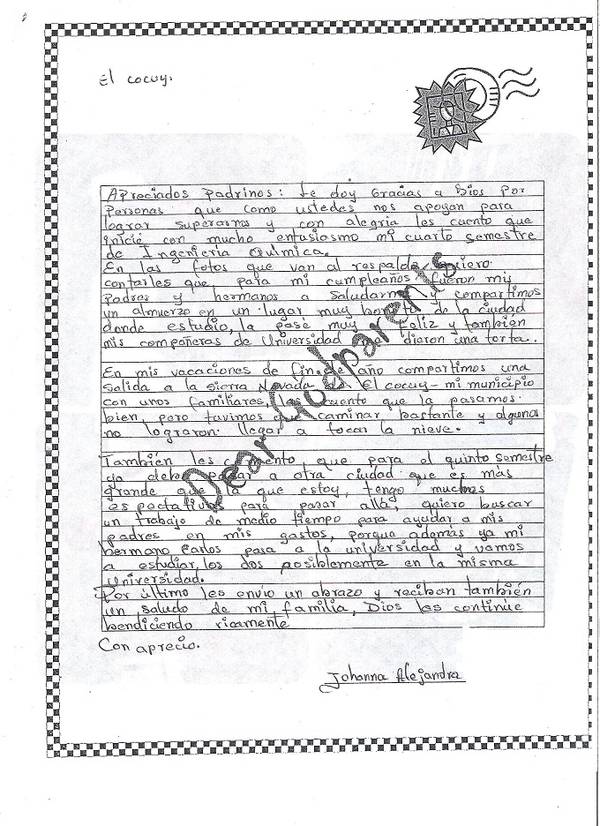 El cocuy.
Apreciados Padrinos: Le doy Gracias a Dios por
Personas que como ustedes nos apoyan para
lograr superarnos y con alegria les cuento que
inicié con mucho entusiasmo mi cuarto semestre
de Ingeniería Química.
En las fotos que van al respaldo quiero
contarles que, para mi cumpleaños fueron mis
Padres y hermanos a saludarme y compartimos
un almuerzo en un lugar muy bonito de la ciudad
donde estudio, la pase muy feliz y también
mis compañeras de Universidad me dieron una torta..
En mis vacaciones de fin de año compartimos una
salida a la sierra Nevada de El cocuy - mi municipio
con unos familiares, les cuento que la pasamos
bien, pero tuvimos que caminar bastante y algunos
no lograron llegar a tocar la nieve.
También les comento que para el quinto semestre
ya debo pasar a otra ciudad que es más
grande que la que estoy, tengo muchas
espectativas para pasar allá, quiero buscar
un trabajo de medio tiempo para ayudar a mis
padres en mis gastos, porque además ya mi
hermano Carlos pasa a la universidad y vamos
a estudiar los dos posiblemente en la misma
Universidad.
Por último les envio un abrazo y reciban también
un saludo de mi familia, Dios los continúe
bendiciendo ricamente
Con aprecio.
Johanna Alejandra
Dear Godparents